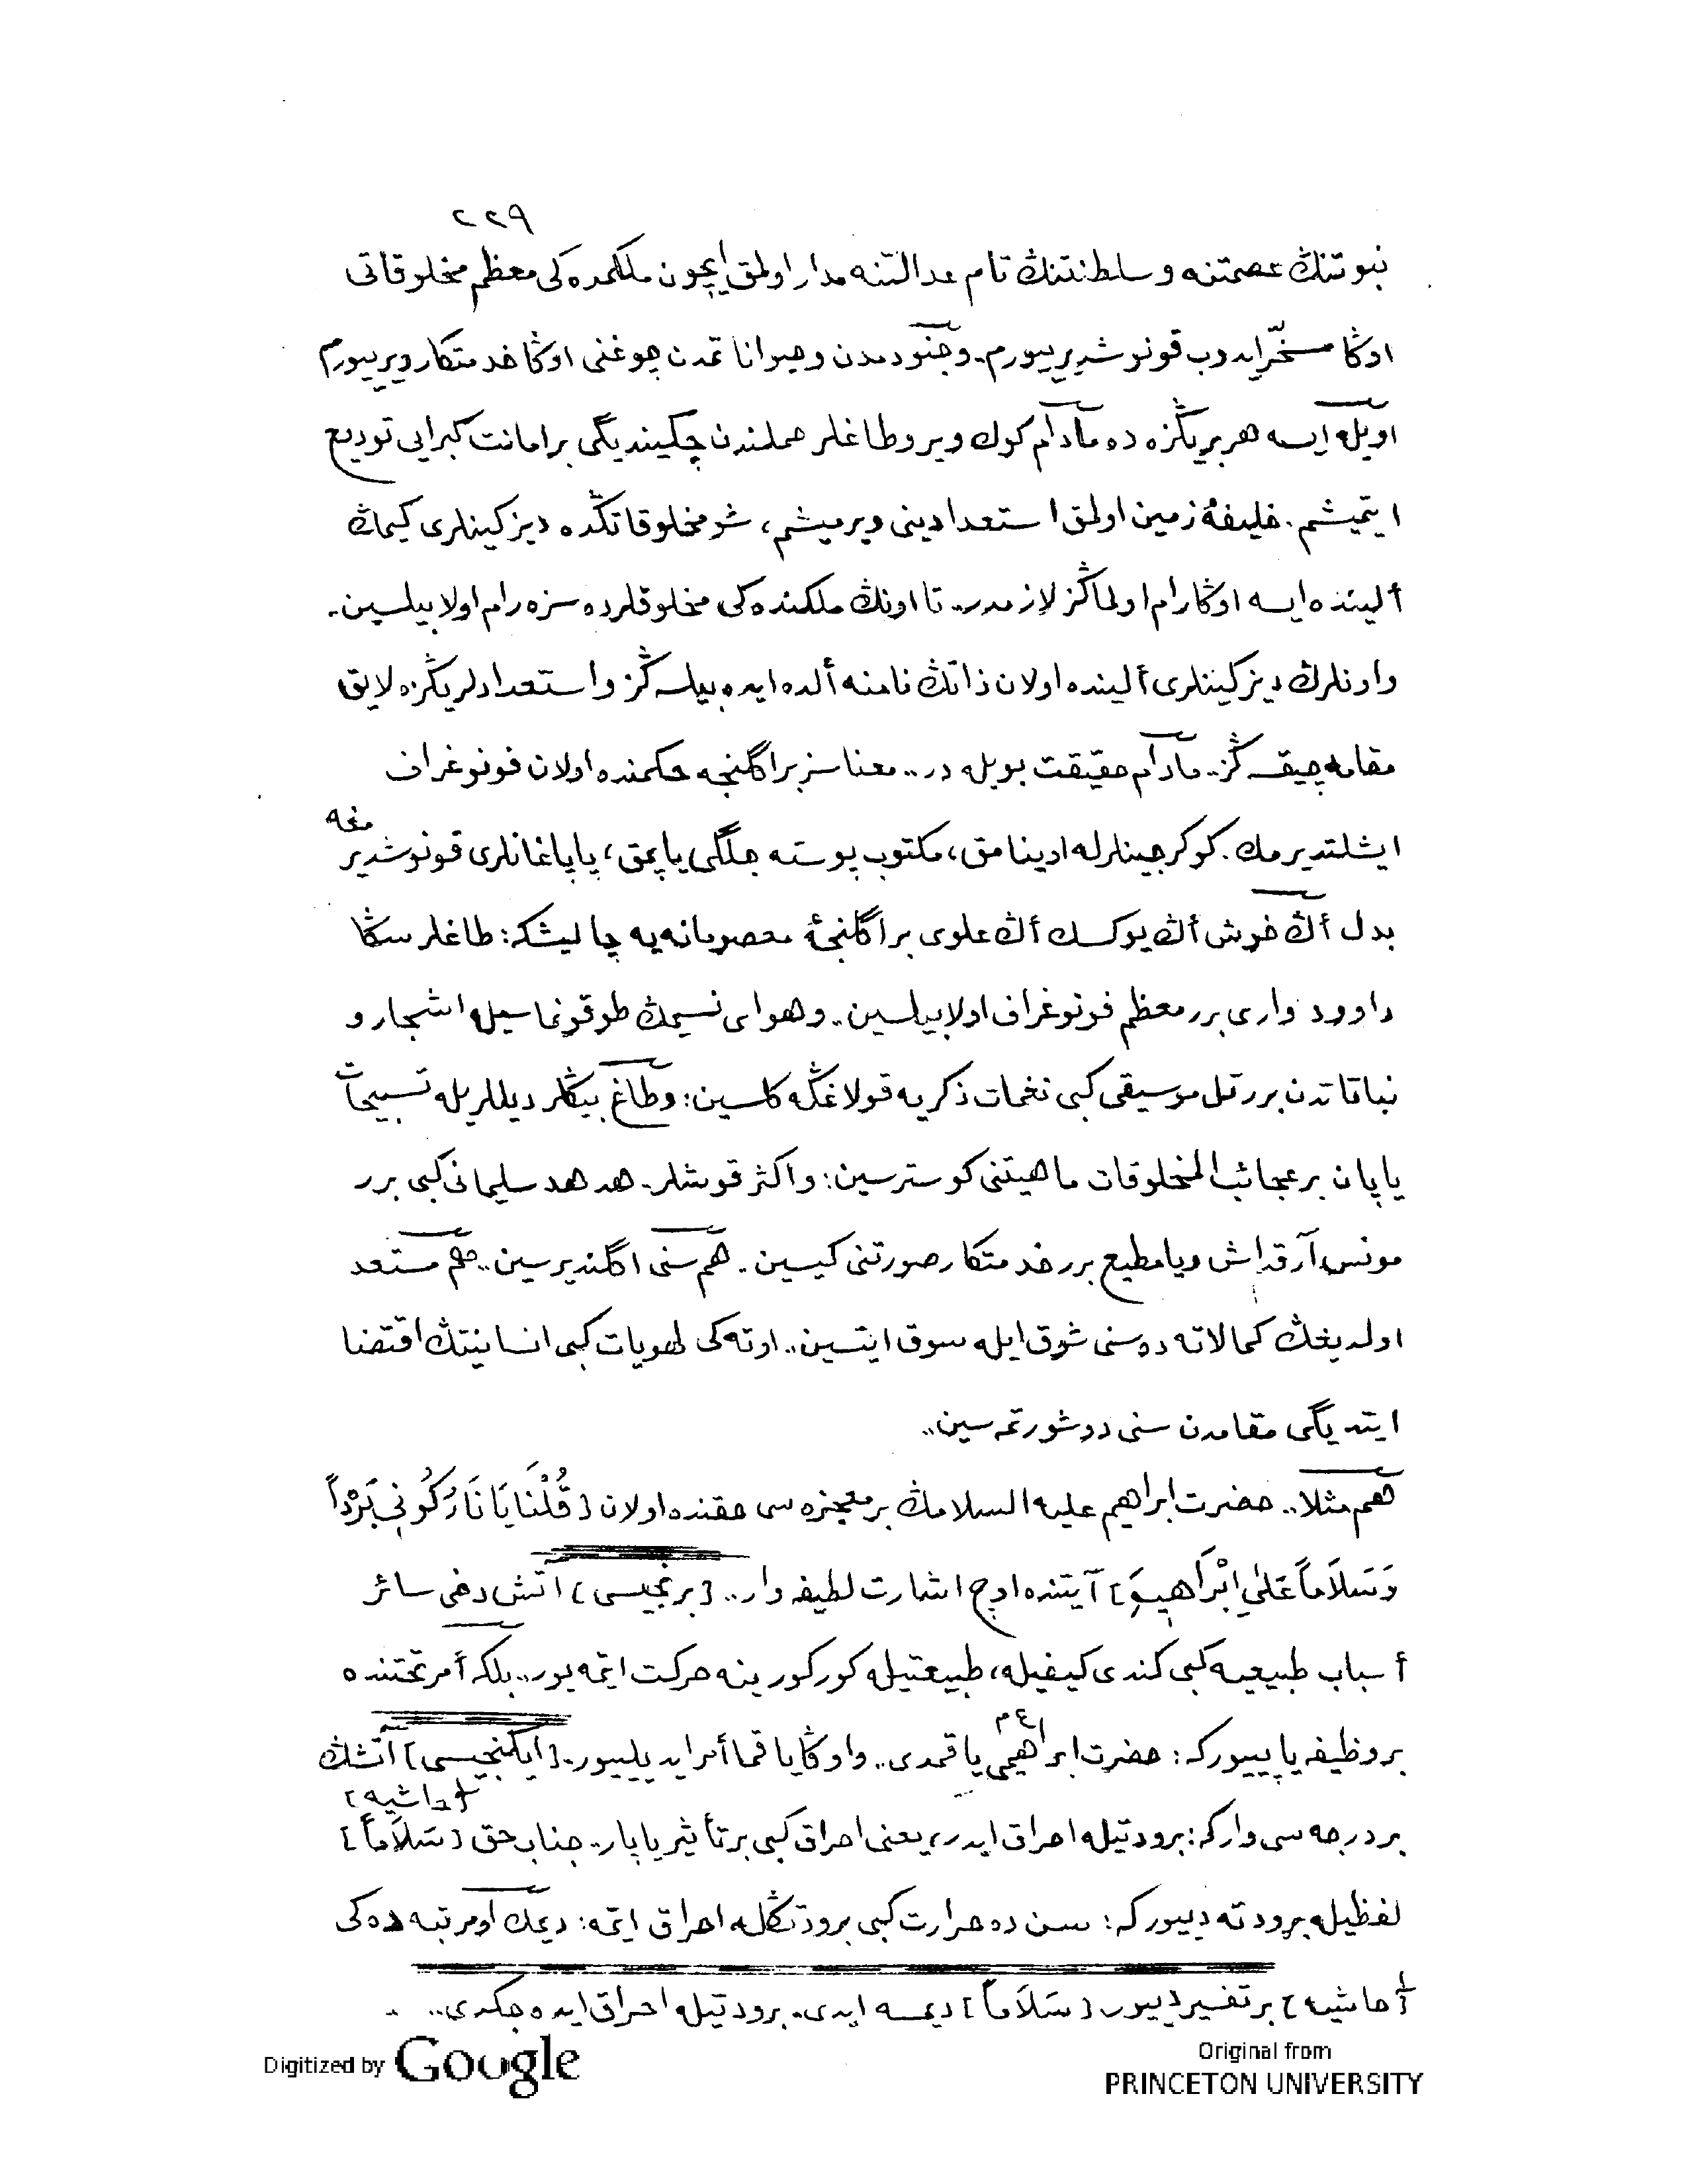 ٢٢٩
نبوتنڭ عصمتنه و سلطنتنڭ تام عدالتنه مدار اولمق ایچون ملكمده كی معظم مخلوقاتی
اوڭا مسخّر ایدوب قونوشدیرییورم. وجنودمدن وحیواناتمدن چوغنی اوڭا خدمتكار ویرییورم
اویله ایسه هر بریڭزه ده مادام كوك ویر وطاغلر حملندن چكیندیگی بر امانت كبرایی تودیع
ایتمیشم. خلیفۀ زمین اولمق استعدادینی ویرمیشم، شو مخلوقاتڭده دیزكینلری كیمڭ
ألینده ایسه اوڭا رام اولماڭز لازمدر.. تا اونڭ ملكنده كی مخلوقلرده سزه رام اولابیلسین.
واونلرڭ دیزكینلری ألینده اولان ذاتڭ نامنه ألده ایده بیلسه ڭز واستعدادلریڭزه لایق
مقامه چیقسه ڭز.. مادام حقیقت بویله در.. معناسز بر اگلنجه حكمنده اولان فونوغراف
ایشلتدیرمك. كوكرجینلرله اوینامق، مكتوب پوسته جلگی یاپمق، پاپاغانلری قونوشدیرمغه
بدل أڭ خوش أڭ یوكسك أڭ علوی بر اگلنجۀ معصومانه یه چالیشكه: طاغلر سڭا
داوود واری برر معظم فونوغراف اولابیلسین.. وهوای نسیمڭ طوقونماسیله اشجار و
نباتاتدن برر تل موسیقی كبی نغمات ذكریه قولاغڭه كلسین: وطاغ بیڭلر دیللریله تسبیحات
یاپان بر عجائب المخلوقات ماهیتنی كوسترسین: واكثر قوشلر. هدهد سلیمانی كبی برر
مونس آرقداش ویا مطیع برر خدمتكار صورتنی كیسین. هم سنی اگلندیرسین.. هم مستعد
اولدیغڭ كمالاته ده سنی شوق ایله سوق ایتسین.. اوته كی لهویات كبی انسانیتڭ اقتضا
ایتدیگی مقامدن سنی دوشورتمه سین..
هم مثلا.. حضرت ابراهیم علیه السلامڭ بر معجزه سی حقنده اولان [قُلْنَا يَا نَارُ كُونِي بَرْداً
وَسَلاَماً عَلٰى اِبْرَاهِيمَ] آیتنده اوچ اشارت لطیفه وار.. [برنجیسی] آتش دخی سائر
أسباب طبیعیه كبی كندی كیفیله، طبیعتیله كوركورینه حركت ایتمه یور.. بلكه أمر تحتنده
بر وظیفه یاپییوركه: حضرت ابراهیمی ع م یاقمدی.. واوڭا یاقما أمر ایدیلییور. [ایكنجیسی] آتشڭ
بر درجه سی واركه: برودتیله احراق ایدر، یعنی احراق كبی بر تأثیر یاپار.. جناب حق [سَلاَماً] [حاشیه]
لفظیله برودته دییوركه: سن ده حرارت كبی برودتڭله احراق ایتمه: دیمك او مرتبه ده كی
[حاشیه] بر تفسیر دییور [سَلاَماً] دیمسه ایدی. برودتیله احراق ایده جكدی..
Digitized by Google
Original from
PRINCETON UNIVERSITY